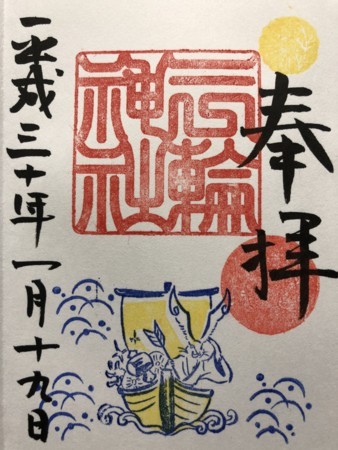 奉拝
三輪神社
平成三十年一月十九日